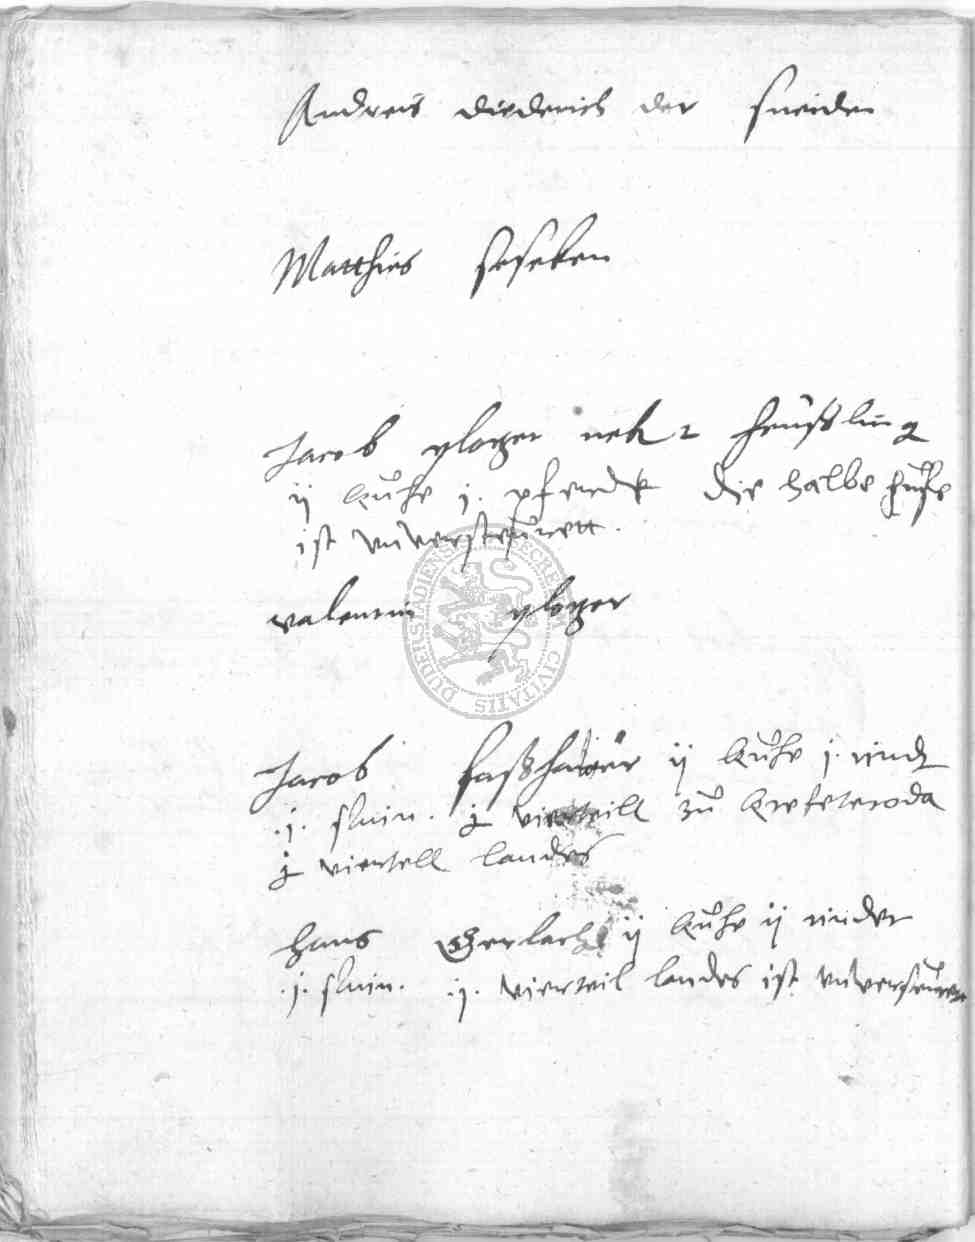 Andreis diederich der sneider
Matthies seseken
Jacob ploger 2 heußling
ij kuhe j. pferdt die halbe hufe
ist unversteurett.
valentin ploger
Jacob faßhawer ij kuhe j. rindt
.j. swin. j vierteill zu
j viertell landes
hans Gerlach ij kuhe ij rinder
.j. swin. .ij. vierteil landes ist
DUDERSTADIENSIS SECRETUM CIVITATIS